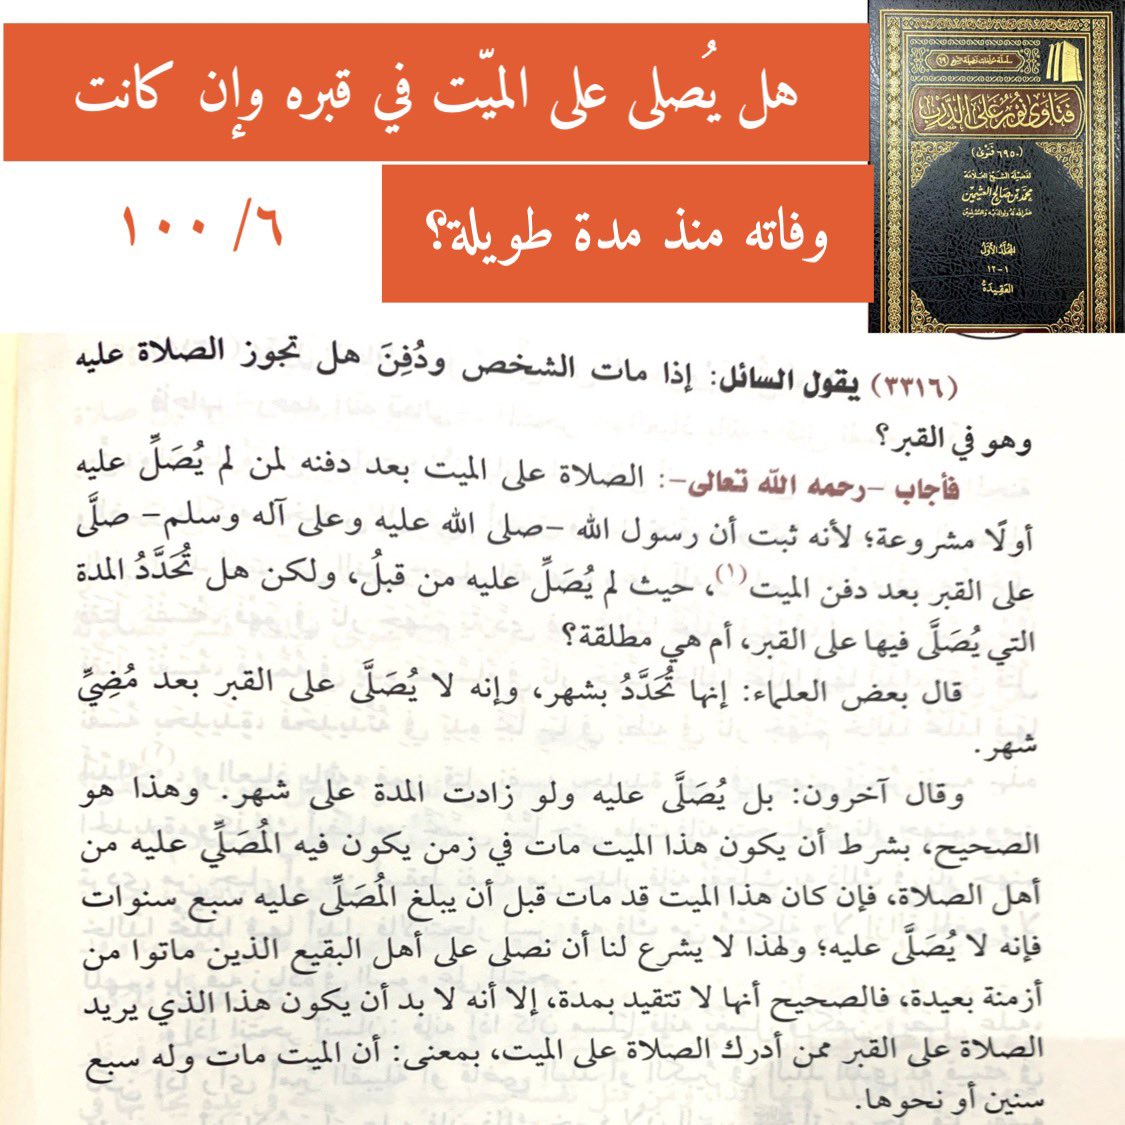 هل يُصلى على الميّت في قبره وإن كانت
وفاته منذ مدة طويلة؟
٦/ ١٠٠
فتاوى نور على الدرب
(٦٩٥٠ فتوى)
لفضيلة الشيخ العلامة
محمد بن صالح العثيمين
غفر الله له ولوالديه وللمسلمين
المجلد الأول
١-١٢
العقيدة
(٣٣١٦) يقول السائل: إذا مات الشخص ودُفِنَ هل تجوز الصلاة عليه
وهو في القبر؟
فأجاب -رحمه الله تعالى-: الصلاة على الميت بعد دفنه لمن لم يُصَلِّ عليه
أولًا مشروعة؛ لأنه ثبت أن رسول الله -صلى الله عليه وعلى آله وسلم- صلَّى
على القبر بعد دفن الميت(١)، حيث لم يُصَلِّ عليه من قبلُ، ولكن هل تُحَدَّدُ المدة
التي يُصَلَّى فيها على القبر، أم هي مطلقة؟
قال بعض العلماء: إنها تُحَدَّدُ بشهر، وإنه لا يُصَلَّى على القبر بعد مُضِيِّ
شهر.
وقال آخرون: بل يُصَلَّى عليه ولو زادت المدة على شهر. وهذا هو
الصحيح، بشرط أن يكون هذا الميت مات في زمن يكون فيه المُصَلِّي عليه من
أهل الصلاة، فإن كان هذا الميت قد مات قبل أن يبلغ المُصَلِّى عليه سبع سنوات
فإنه لا يُصَلَّى عليه؛ ولهذا لا يشرع لنا أن نصلي على أهل البقيع الذين ماتوا من
أزمنة بعيدة، فالصحيح أنها لا تتقيد بمدة، إلا أنه لا بد أن يكون هذا الذي يريد
الصلاة على القبر ممن أدرك الصلاة على الميت، بمعنى: أن الميت مات وله سبع
سنين أو نحوها.